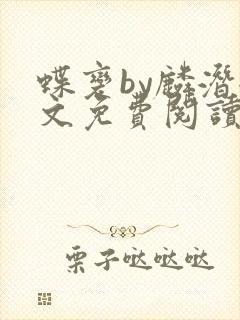 蝶变by麟潜
文免费阅读
栗子哒哒哒